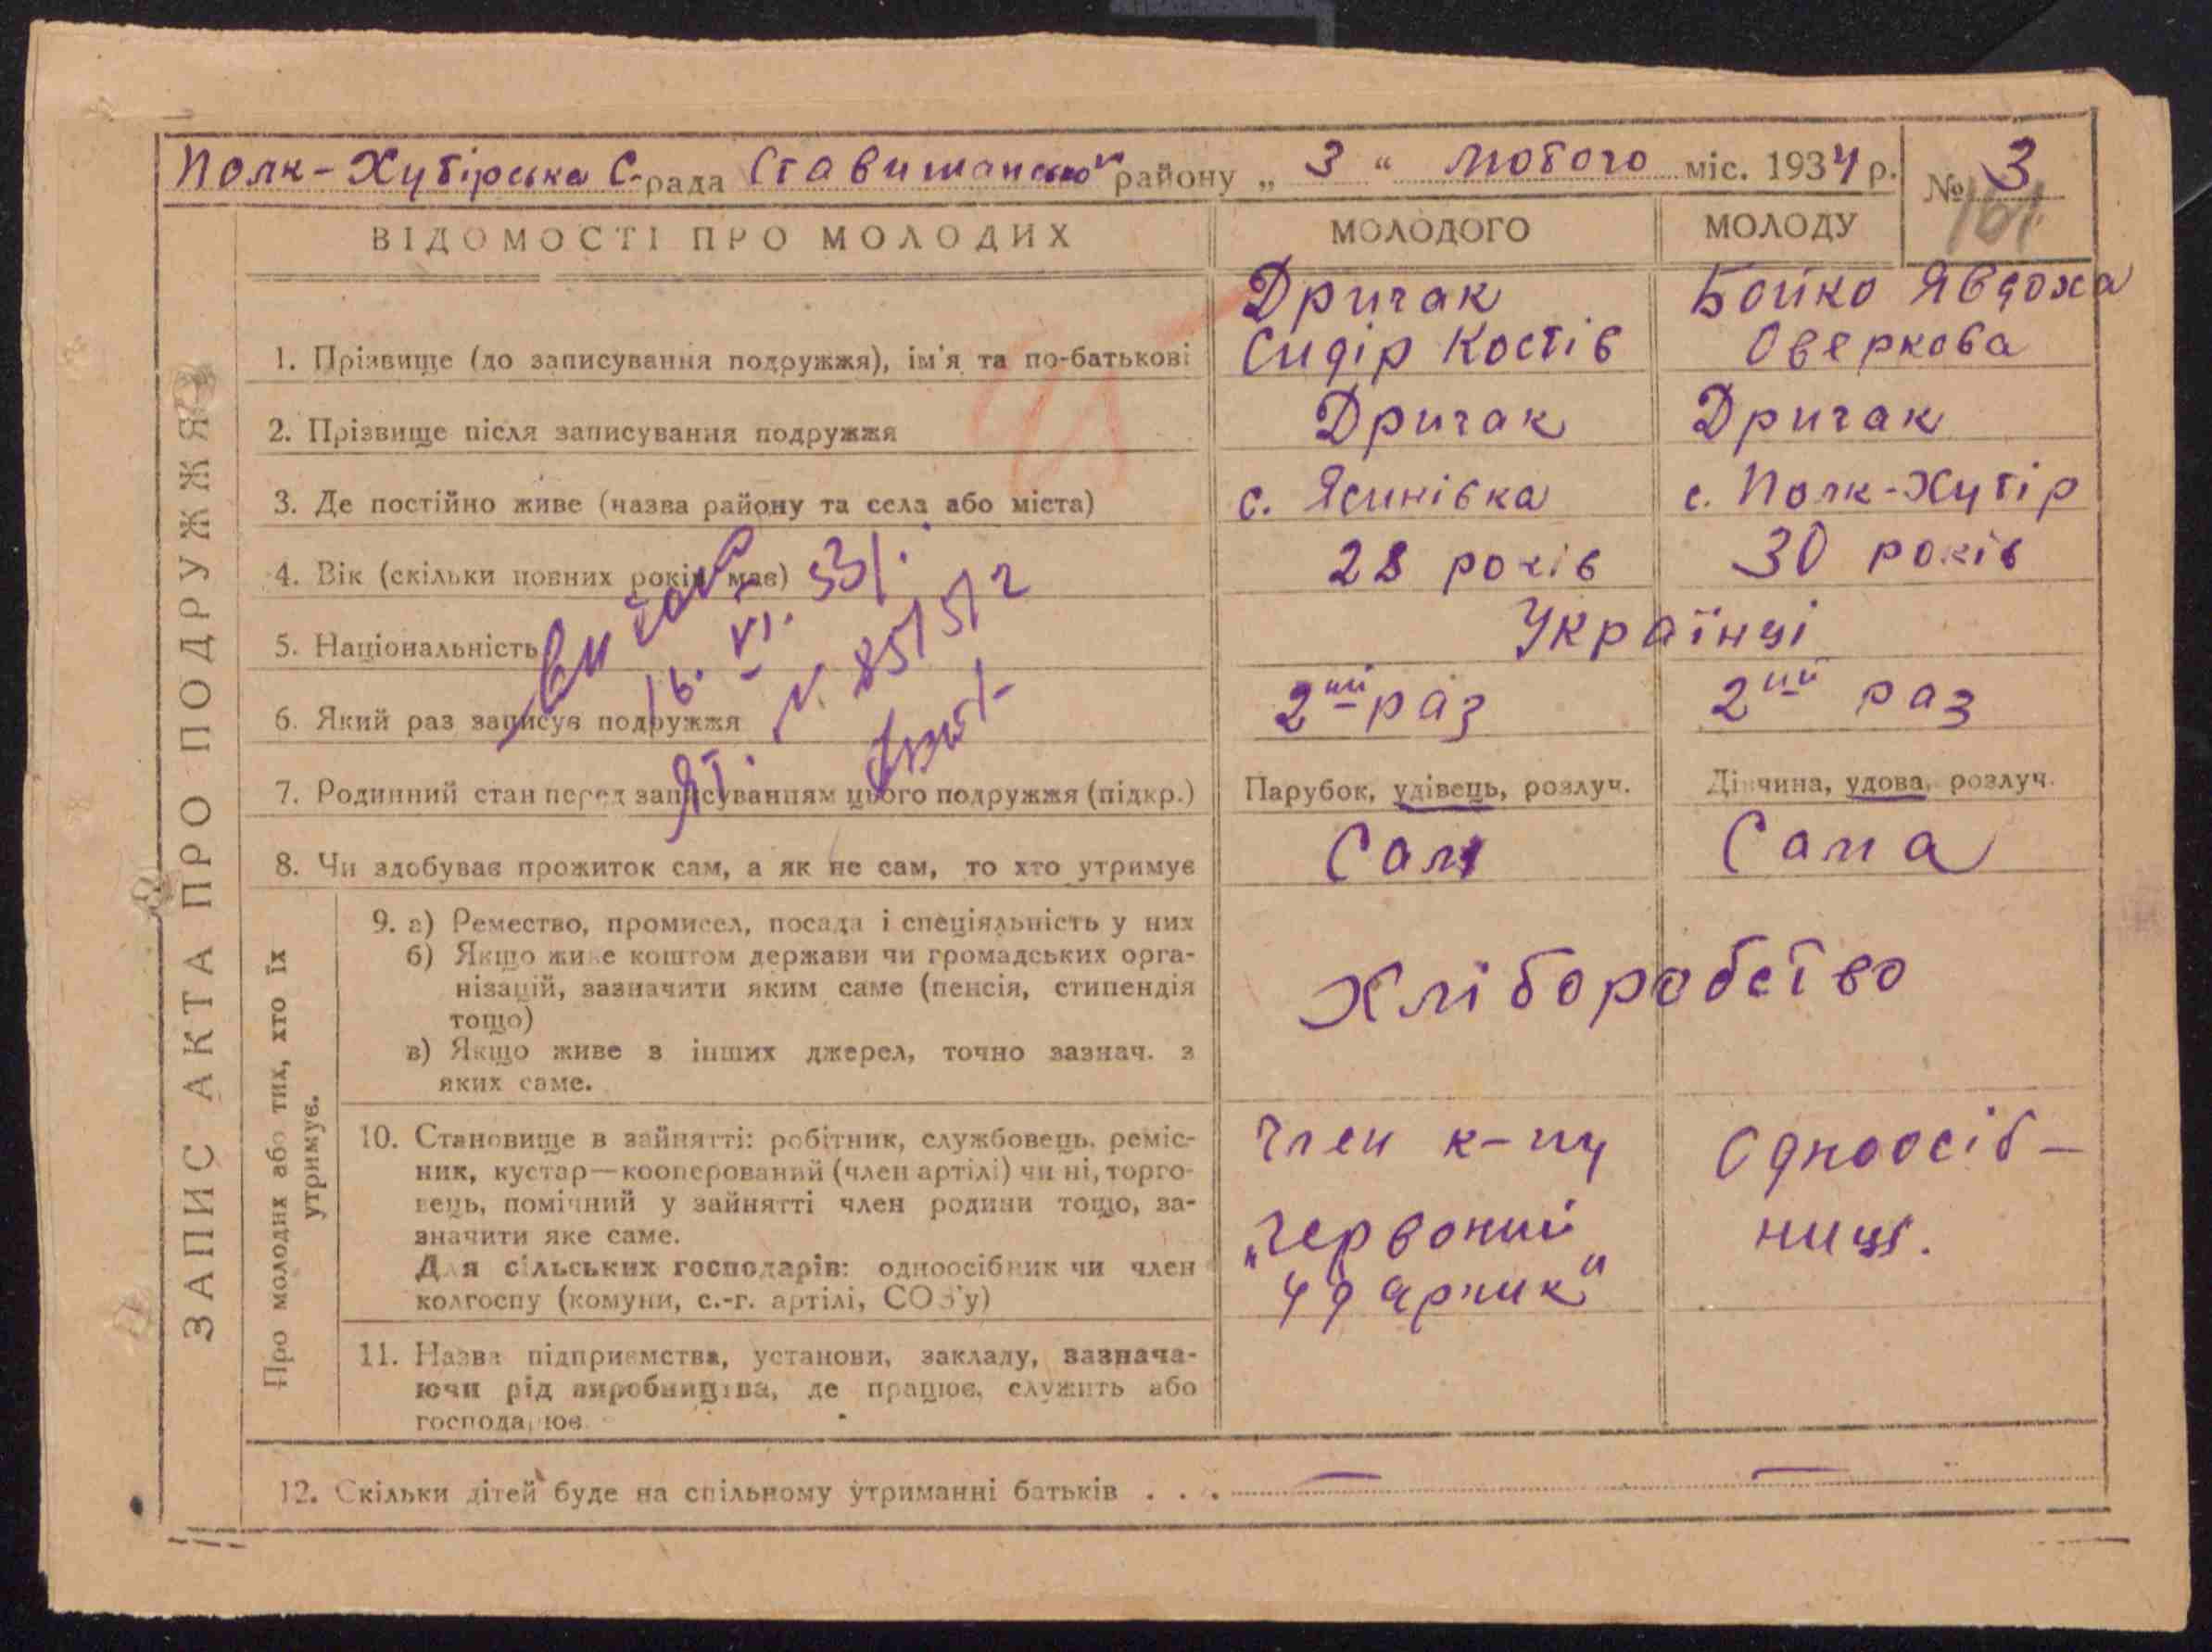 Полк-Хутірська С. рада Ставишанського району „ 3 “ лютого міс. 1934 р. № 3
161
ВІДОМОСТІ ПРО МОЛОДИХ
МОЛОДОГО
МОЛОДУ
ЗАПИС АКТА ПРО ПОДРУЖЖЯ
1. Прізвище (до записування подружжя), ім'я та по-батькові
Дричак
Сидір Костів
Бойко Явдоха
Оверкова
2. Прізвище після записування подружжя
Дричак
Дричак
3. Де постійно живе (назва району та села або міста)
с. Ясинівка
с. Полк-Хутір
4. Вік (скільки повних років має)
28 років
30 років
5. Національність
Українці
6. Який раз записує подружжя
2ий раз
2ий раз
7. Родинний стан перед записуванням цього подружжя (підкр.)
Парубок, удівець, розлуч.
Дівчина, удова, розлуч.
8. Чи здобуває прожиток сам, а як не сам, то хто утримує
Сам
Сама
Про молодих або тих, хто їх
утримує.
9. а) Ремество, промисел, посада і спеціяльність у них
б) Якщо живе коштом держави чи громадських орга-
нізацій, зазначити яким саме (пенсія, стипендія
тощо)
в) Якщо живе з інших джерел, точно зазнач. з
яких саме.
Хліборобство
10. Становище в зайнятті: робітник, службовець, реміс-
ник, кустар—кооперований (член артілі) чи ні, торго-
вець, помічний у зайнятті член родини тощо, за-
значити яке саме.
Для сільських господарів: одноосібник чи член
колгоспу (комуни, с.-г. артілі, СОЗ'у)
Член к-пу
„Червоний
ударник“
Одноосіб-
ниця.
11. Назва підприємства, установи, закладу, зазнача-
ючи рід виробництва, де працює, служить або
господарює
12. Скільки дітей буде на спільному утриманні батьків . . . — —
16. VI. 53